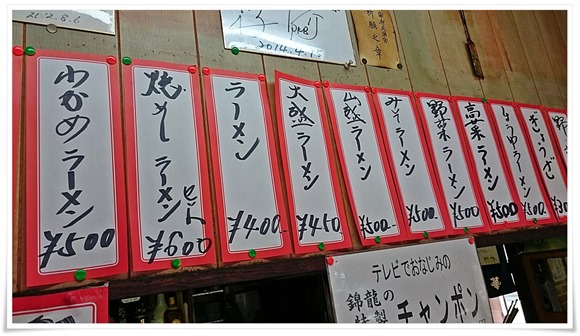 212.8.6
2014.4.15
わかめラーメン ¥500
焼めしラーメンセット ¥600
ラーメン ¥400
大盛ラーメン ¥450
山盛ラーメン ¥500
みそラーメン ¥500
野菜ラーメン ¥500
高菜ラーメン ¥500
しょうゆラーメン ¥500
ぎょうざ
野
テレビでおなじみの
錦龍の
特製
チャンポン